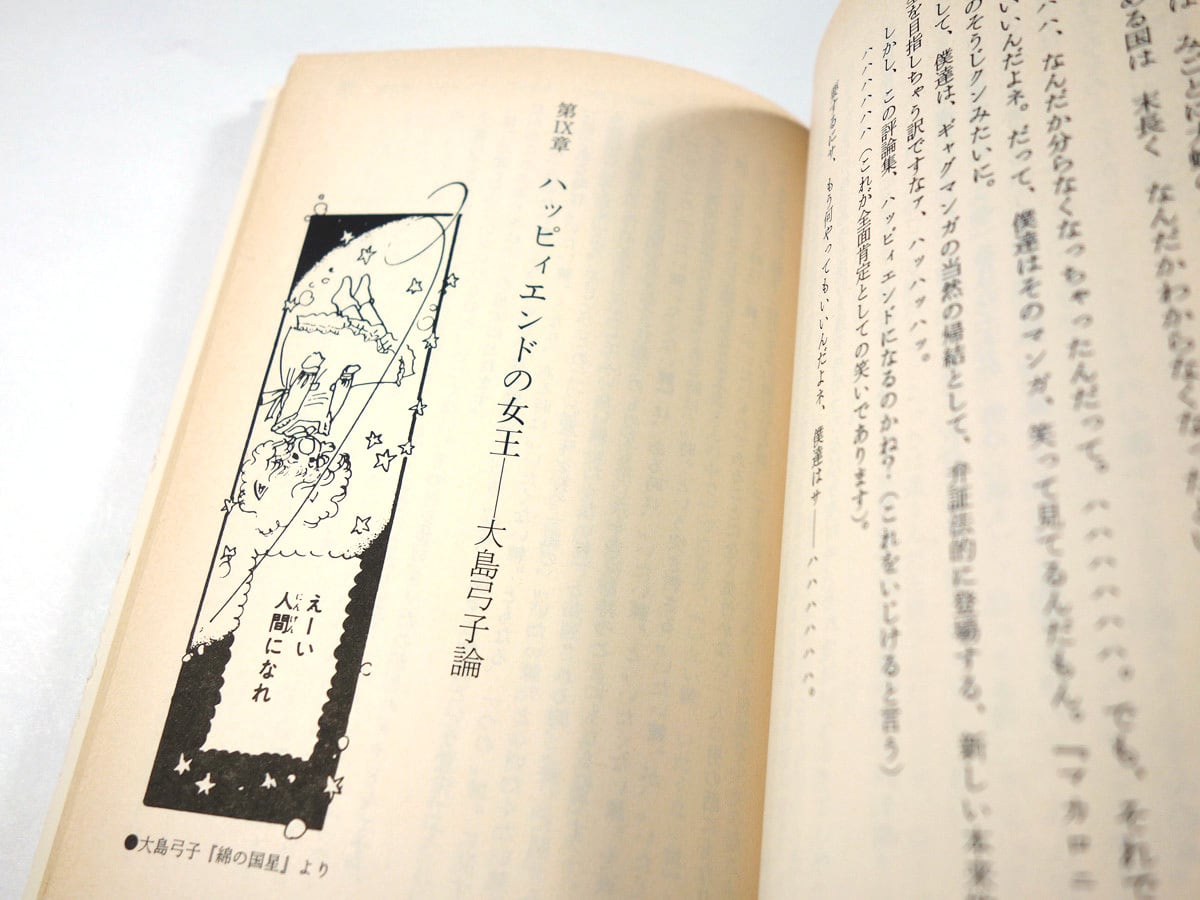 ある国は 末長く なんだかわからなくなっ
ハハ、なんだか分らなくなっちゃったんだって。ハハハハハハ。でも、それで
いいんだよネ。だって、僕達はそのマンガ、笑って見てるんだもん。『マカロニ
のそうじクンみたいに。
して、僕達は、ギャグマンガの当然の帰結として、弁証法的に登場する、新しい本来
を目指しちゃう訳ですなァ、ハッハッハッ。
しかし、この評論集、ハッピィエンドになるのかね?(これをいじけると言う)
ハハハハハハ(これが全面肯定としての笑いであります)。
要するにサ、もう何やってもいいんだよネ、僕達はサ——ハハハハハハ。
第Ⅸ章 ハッピィエンドの女王——大島弓子論
えーい
人間になれ
にんげん
●大島弓子『綿の国星』より